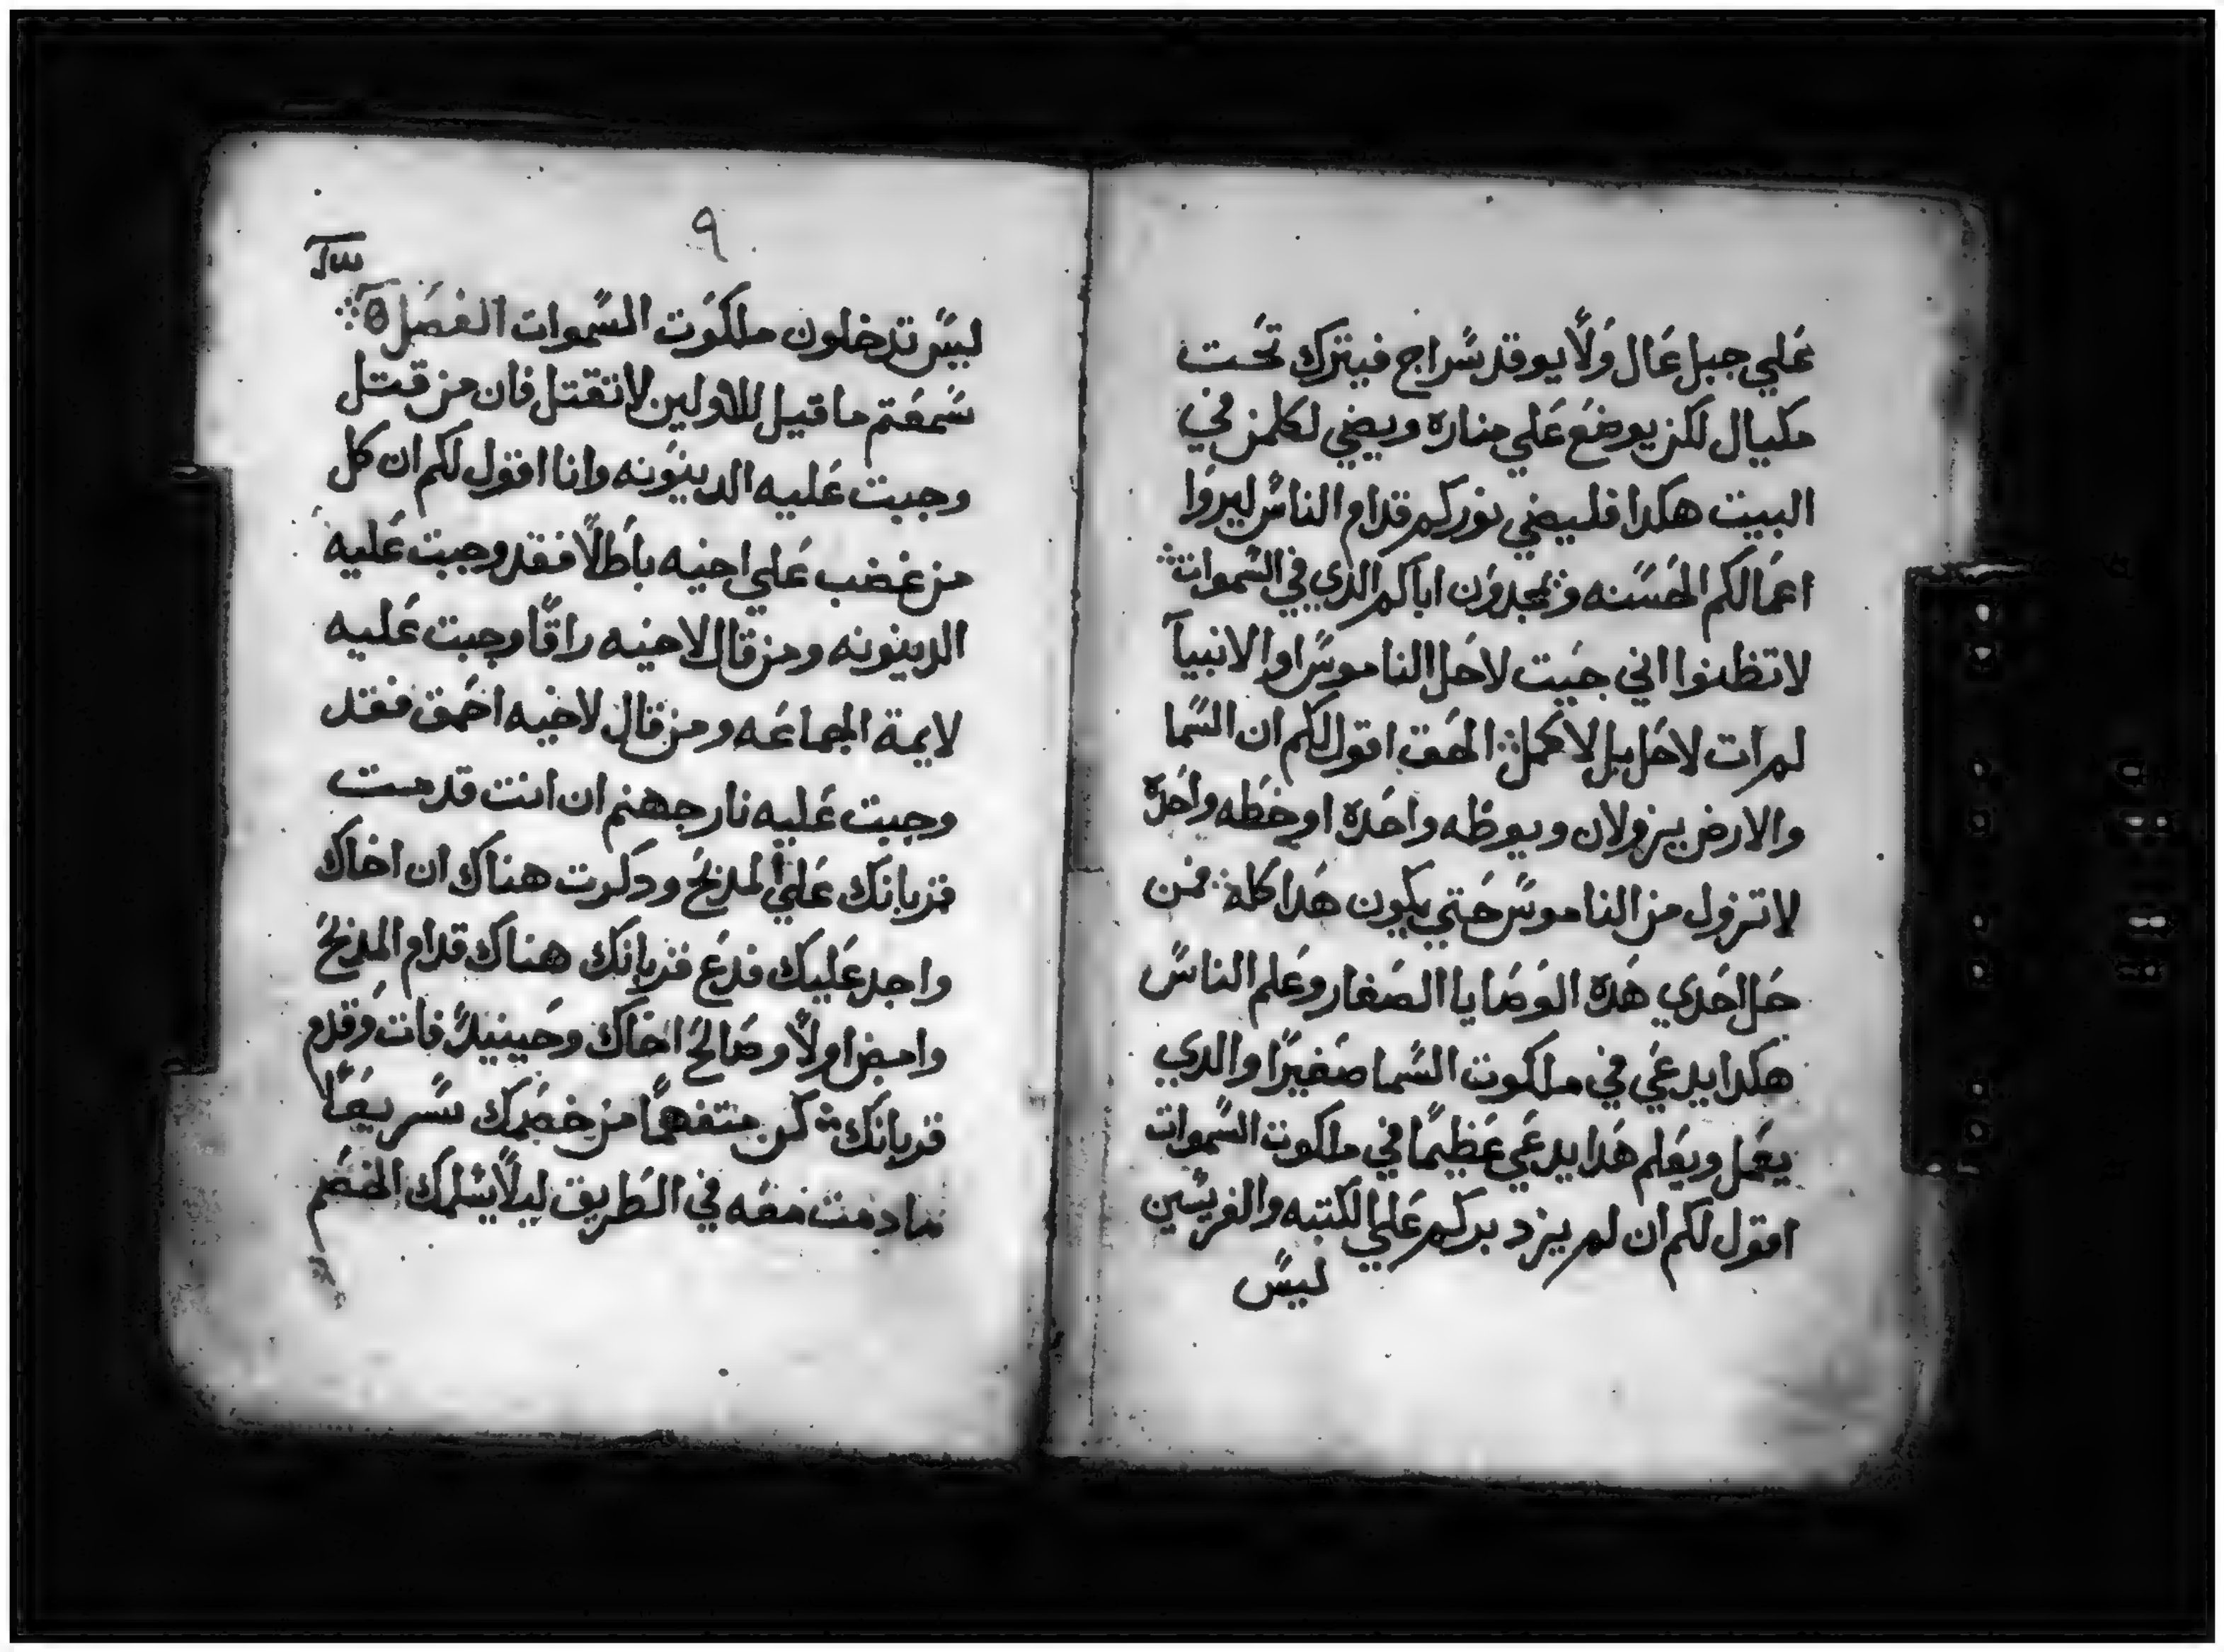 علي جبل عال ولا يوقد سراج فيترك تحت
مكيال لكن يوضع علي مناره ويضي لكلمن في
البيت هكدا فليضي نوركم قدام الناس ليروا
اعمالكم الحسنه ويمجدون اباكم الدي في السموات
لا تظنوا اني جيت لاحل الناموس او الانبيا
لم ات لاحل بل لاكمل الحق اقول لكم ان السما
والارض يزولان ويوطه واحده او خطه واحده
لا تزول من الناموس حتي يكون هدا كله فمن
حل احدي هده الوصايا الصغار وعلم الناس
هكدا يدعي في ملكوت السما صغيرا والدي
يعمل ويعلم هدا يدعي عظيما في ملكوت السموات
اقول لكم ان لم يزد بركم علي الكتبه والفريسين
ليس
٩
ليس تدخلون ملكوت السموات الفصل
سمعتم ما قيل للاولين لا تقتل فان من قتل
وجبت عليه الدينونه وانا اقول لكم ان كل
من غضب علي اخيه باطلا فقد وجبت عليه
الدينونه ومن قال لاخيه راقا وجبت عليه
لايمة الجماعه ومن قال لاخيه احمق فقد
وجبت عليه نار جهنم ان انت قدمت
قربانك علي المدبح ودكرت هناك ان اخاك
واجد عليك فدع قربانك هناك قدام المدبح
وامض اولا وصالح اخاك وحينيد فات وقدم
قربانك كن متفهما من خصمك سريعا
ما دمت معه في الطريق ليلا يسلمك الخصم